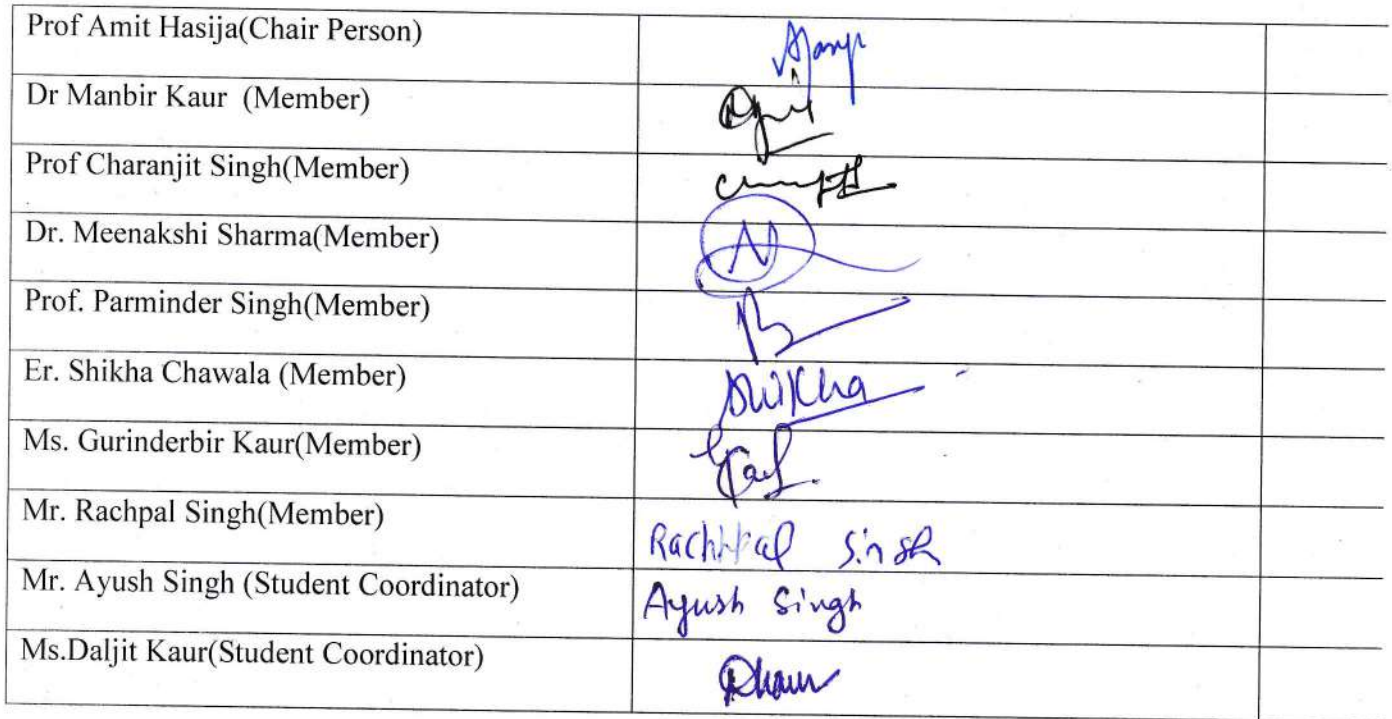 Prof Amit Hasija(Chair Person)
Dr Manbir Kaur (Member)
Prof Charanjit Singh(Member)
Dr. Meenakshi Sharma(Member)
Prof. Parminder Singh(Member)
Er. Shikha Chawala (Member) Shikha
Ms. Gurinderbir Kaur(Member)
Mr. Rachpal Singh(Member) Rachhpal Singh
Mr. Ayush Singh (Student Coordinator) Ayush Singh
Ms.Daljit Kaur(Student Coordinator)